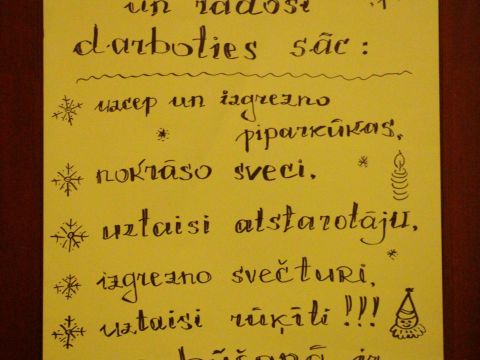 un radoši
darboties sāc:
uzcep un izgrezno
piparkūkas,
nokrāso sveci,
uztaisi atstarotāju,
izgrezno svečturi,
uztaisi rūķīti!!!